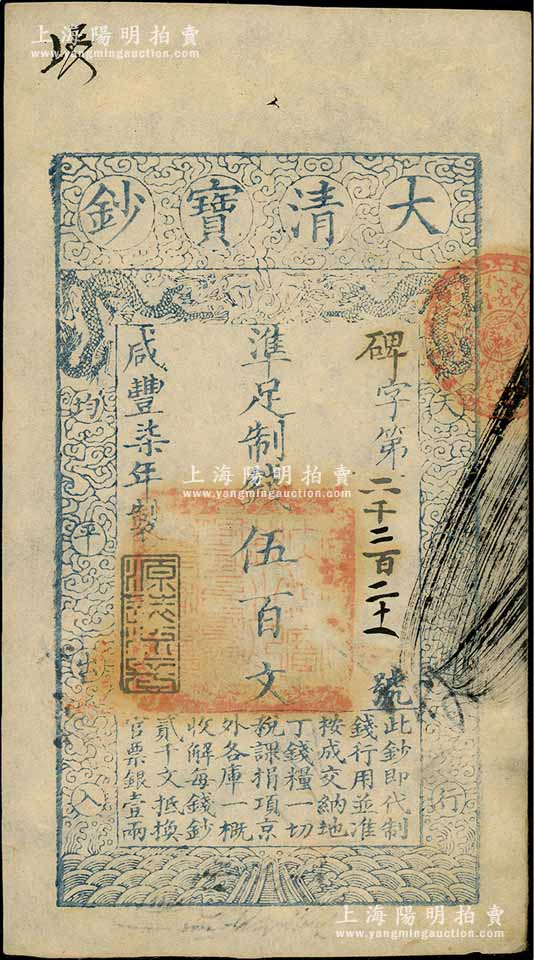 上海陽明拍賣
www.yangmingauction.com
大清寶鈔
碑字第二千二百二十號
準足制錢伍百文
咸豐柒年製
上海陽明拍賣
www.yangmingauction.com
天
行
均
平
入
此鈔即代制
錢行用並准
按成交納地
丁錢糧一切
稅課捐項京
外各庫一概
收解每錢鈔
貳千文抵換
官票銀壹兩
上海陽明拍賣
www.yangmingauction.com